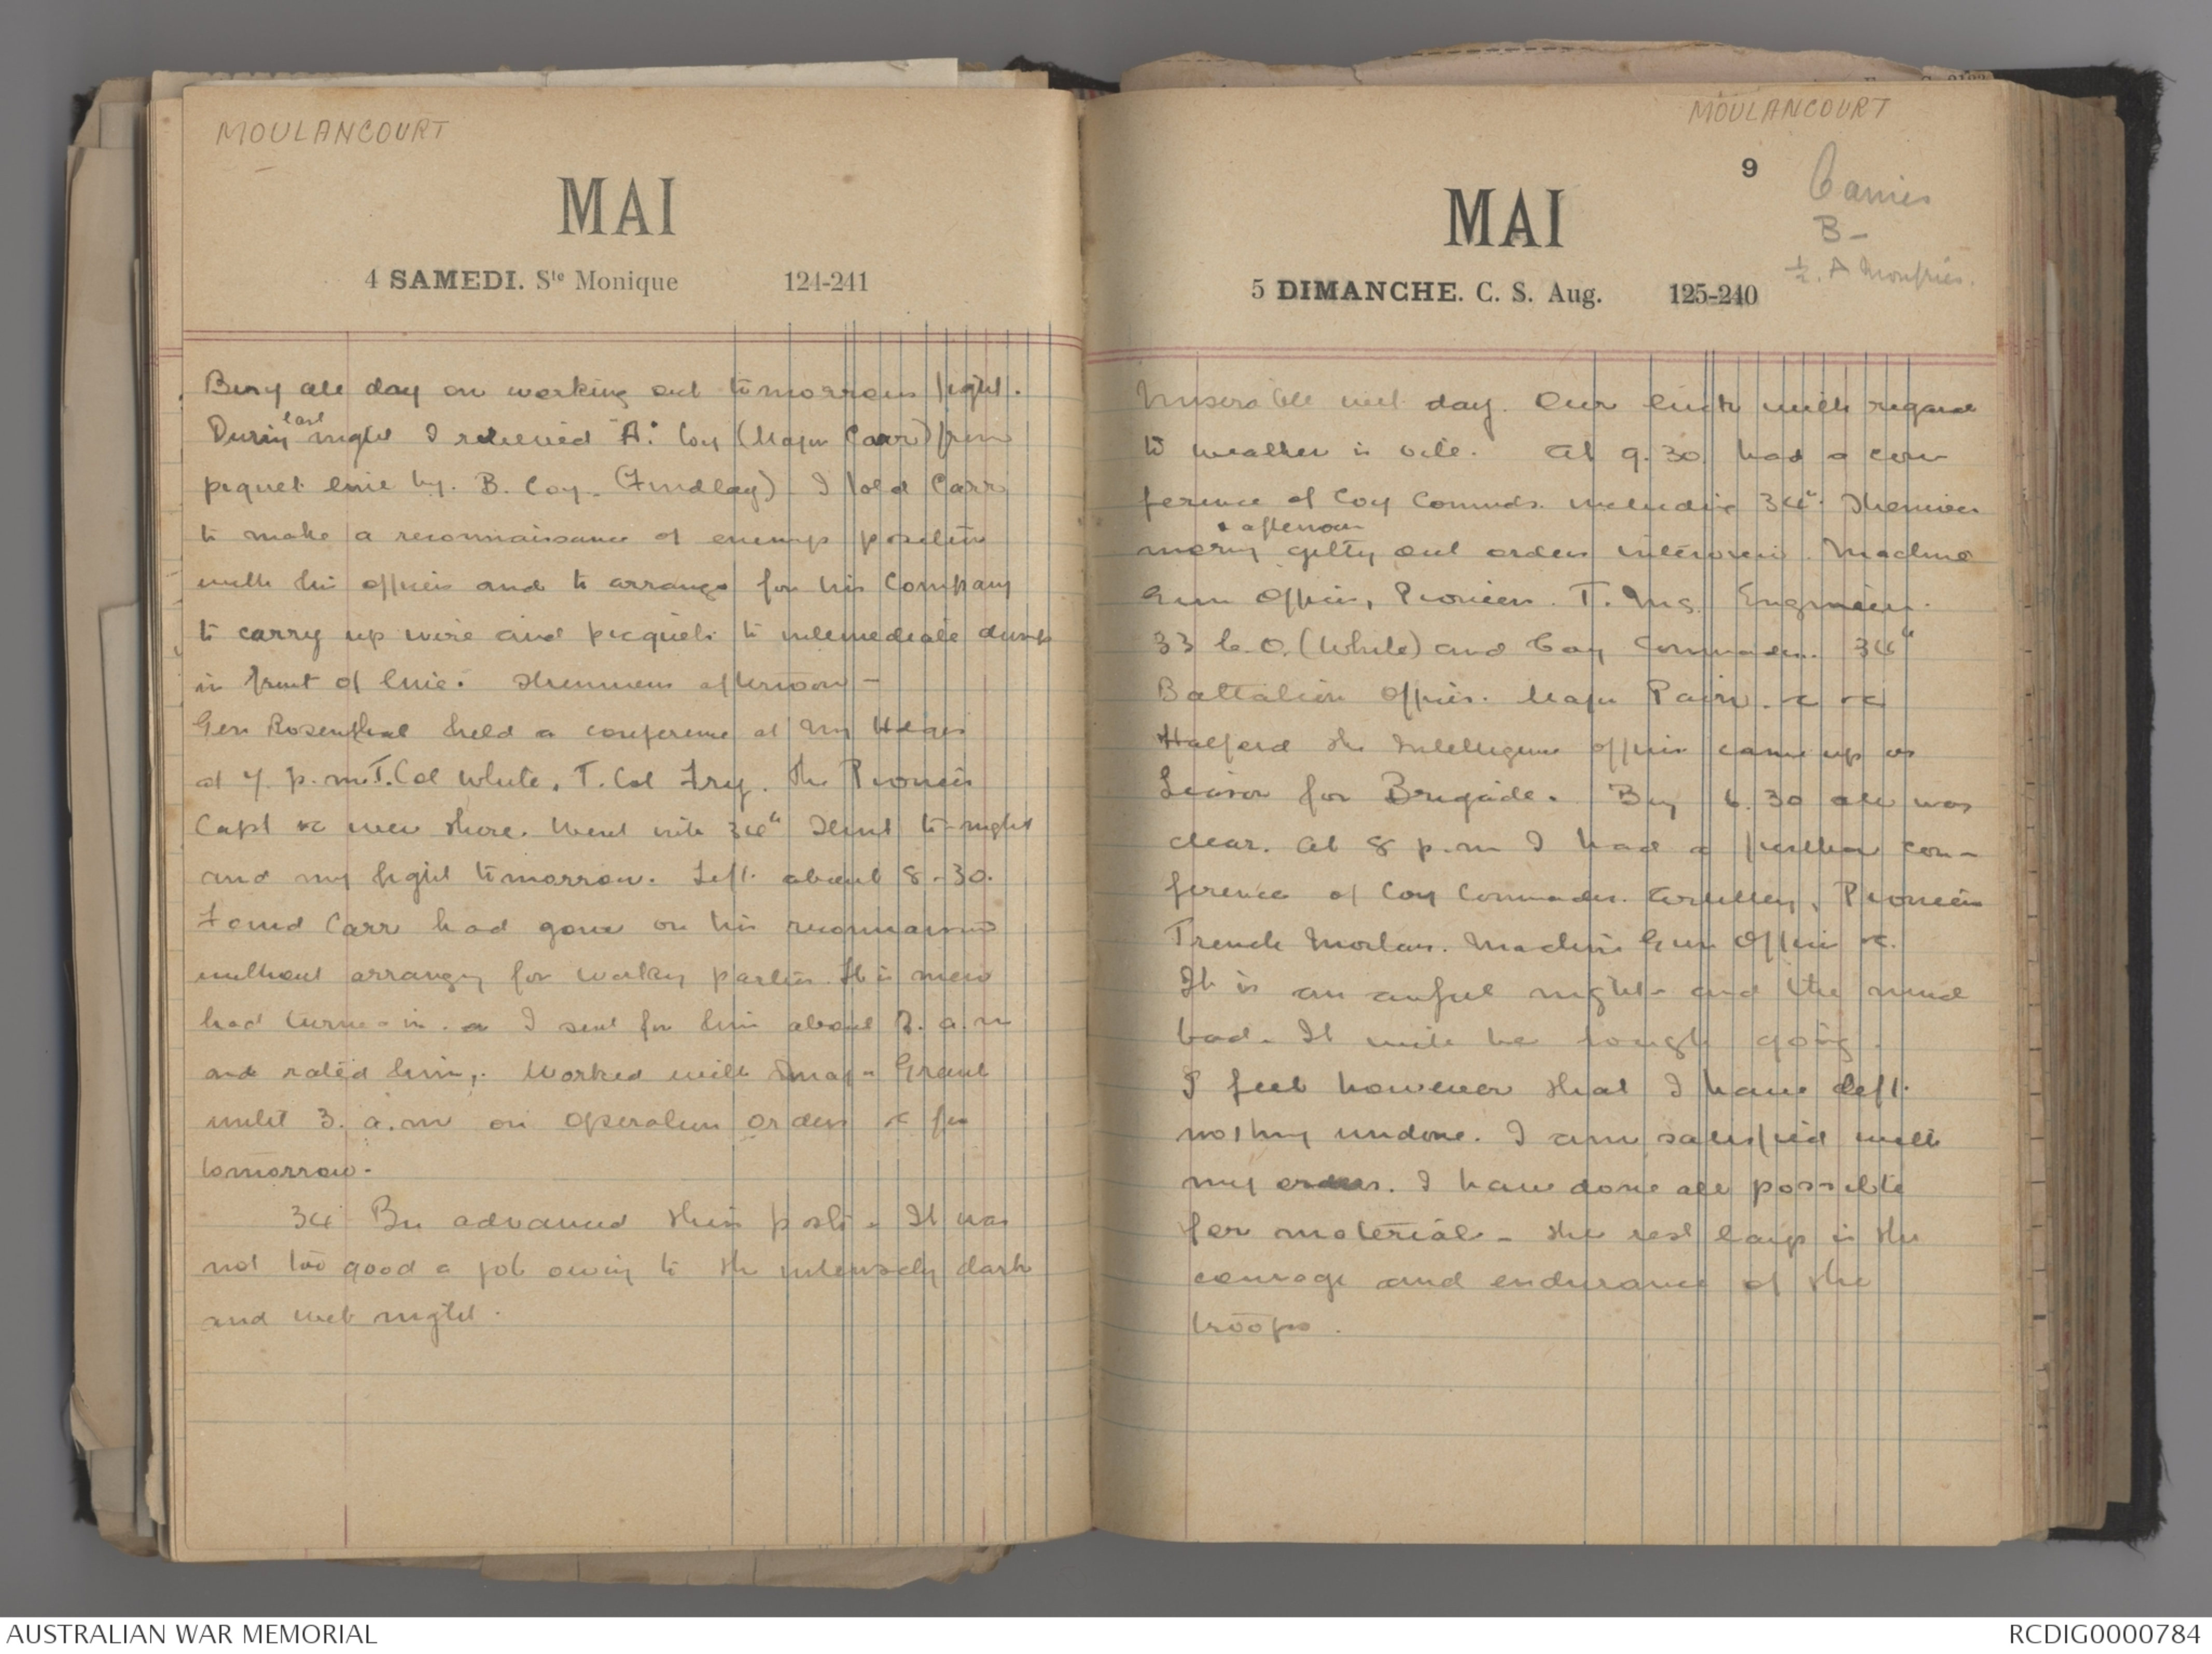 MOULANCOURT
MAI
4 SAMEDI. Ste Monique 124-241
Busy all day on working out tomorrows fight.
During last night I relieved "A" Coy (Major Carr) from
picquet line by B. Coy. (Findlay) I told Carr
to make a reconnaissance of enemys position
with his officers and to arrange for his Company
to carry up wire and picquets to intermediate dump
in front of line.        afternoon -
Gen Rosenthal held a conference at my Hdqrs
at 7. p.m. T. Col White, T. Col Fry. The Pioneer
Capt &c were there. Went into 34th Stunt to-night
and my fight tomorrow. Left about 8-30.
Found Carr had gone on his reconnaissance
without arranging for working parties. His men
had turned in. I sent for him about 2. a.m
and rated him. Worked with       Grant
until 3. a.m on operation orders &c for
tomorrow.
34 Bn advanced their posts. It was
not too good a job owing to the intensely dark
and wet night.
MOULANCOURT
9
MAI
5 DIMANCHE. C. S. Aug. 125-240
Carries
B-
½. A Monfries.
Miserable wet day. Our luck with regard
to weather is vile. At 9.30 had a con
ference of Coy Commds. including 34th.
& afternoon
morng getting out orders interviewing Machine
Gun Officer, Pioneers. T. Ms. Engineers.
33 C.O. (White) and Coy Commaders. 34th
Battalion Officers. Major Pain. &c &c
Halford the Intelligence officer came up as
Liaison for Brigade. By 6.30 all was
clear. At 8 p.m I had a further con-
ference of Coy Commaders. Artillery, Pioneers
Trench Mortars. Machine Gun Officer &c.
It is an awful night - and the mud
bad. It will be tough going.
I feel however that I have left
nothing undone. I am satisfied with
my orders. I have done all possible
for material - the rest lays in the
courage and endurance of the
troops.
AUSTRALIAN WAR MEMORIAL
RCDIG0000784